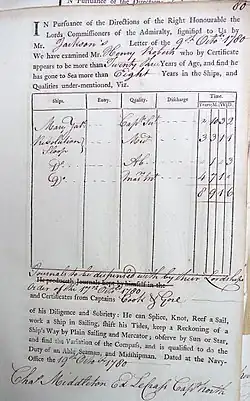 80
IN Pursuance of the Directions of the Right Honourable the
Lords Commissioners of the Admiralty, signified to Us by
Mr. Jackson's Letter of the 9th Octr. 1780
We have examined Mr. Henry Roberts who by Certificate
appears to be more than Twenty two Years of Age, and find he
has gone to Sea more than Eight Years in the Ships, and
Qualities under-mentioned, Viz.
Ships. Entry. Quality. Discharge Time.
Years M. W. D.
Mary Yat. Capt. Sert.
Resolution Sloop Mid
Do. Ab.
Do.
8 9 1 6
Journals to be dispensed with by their Lordships
He produceth Journals kept by himself in the
Order of the 17th Octr. 1780
and Certificates from Captains Cook & Gore
of his Diligence and Sobriety: He can Splice, Knot, Reef a Sail,
work a Ship in Sailing, shift his Tides, keep a Reckoning of a
Ship's Way by Plain Sailing and Mercator; observe by Sun or Star,
and find the Variation of the Compass, and is qualified to do the
Duty of an Able Seaman, and Midshipman. Dated at the Navy-
Office the 19th Octr. 1780
Chas. Middleton Ed. Lecras Capt.